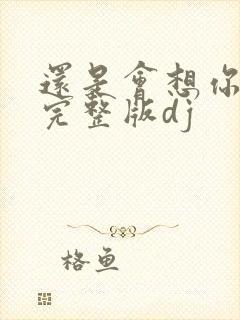 還是會想你
完整版dj
格鱼